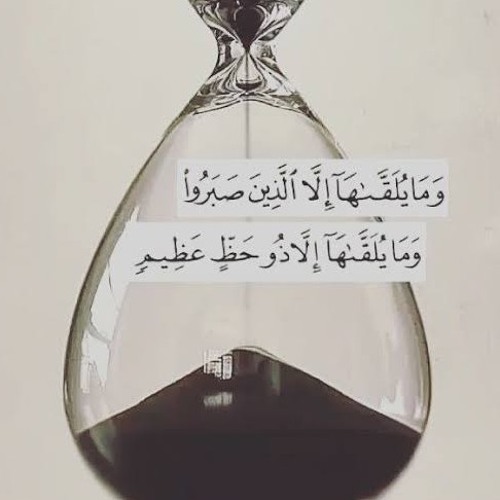 وَمَا يُلَقَّىٰهَآ إِلَّا ٱلَّذِينَ صَبَرُوا۟
وَمَا يُلَقَّىٰهَآ إِلَّا ذُو حَظٍّ عَظِيمٍۢ